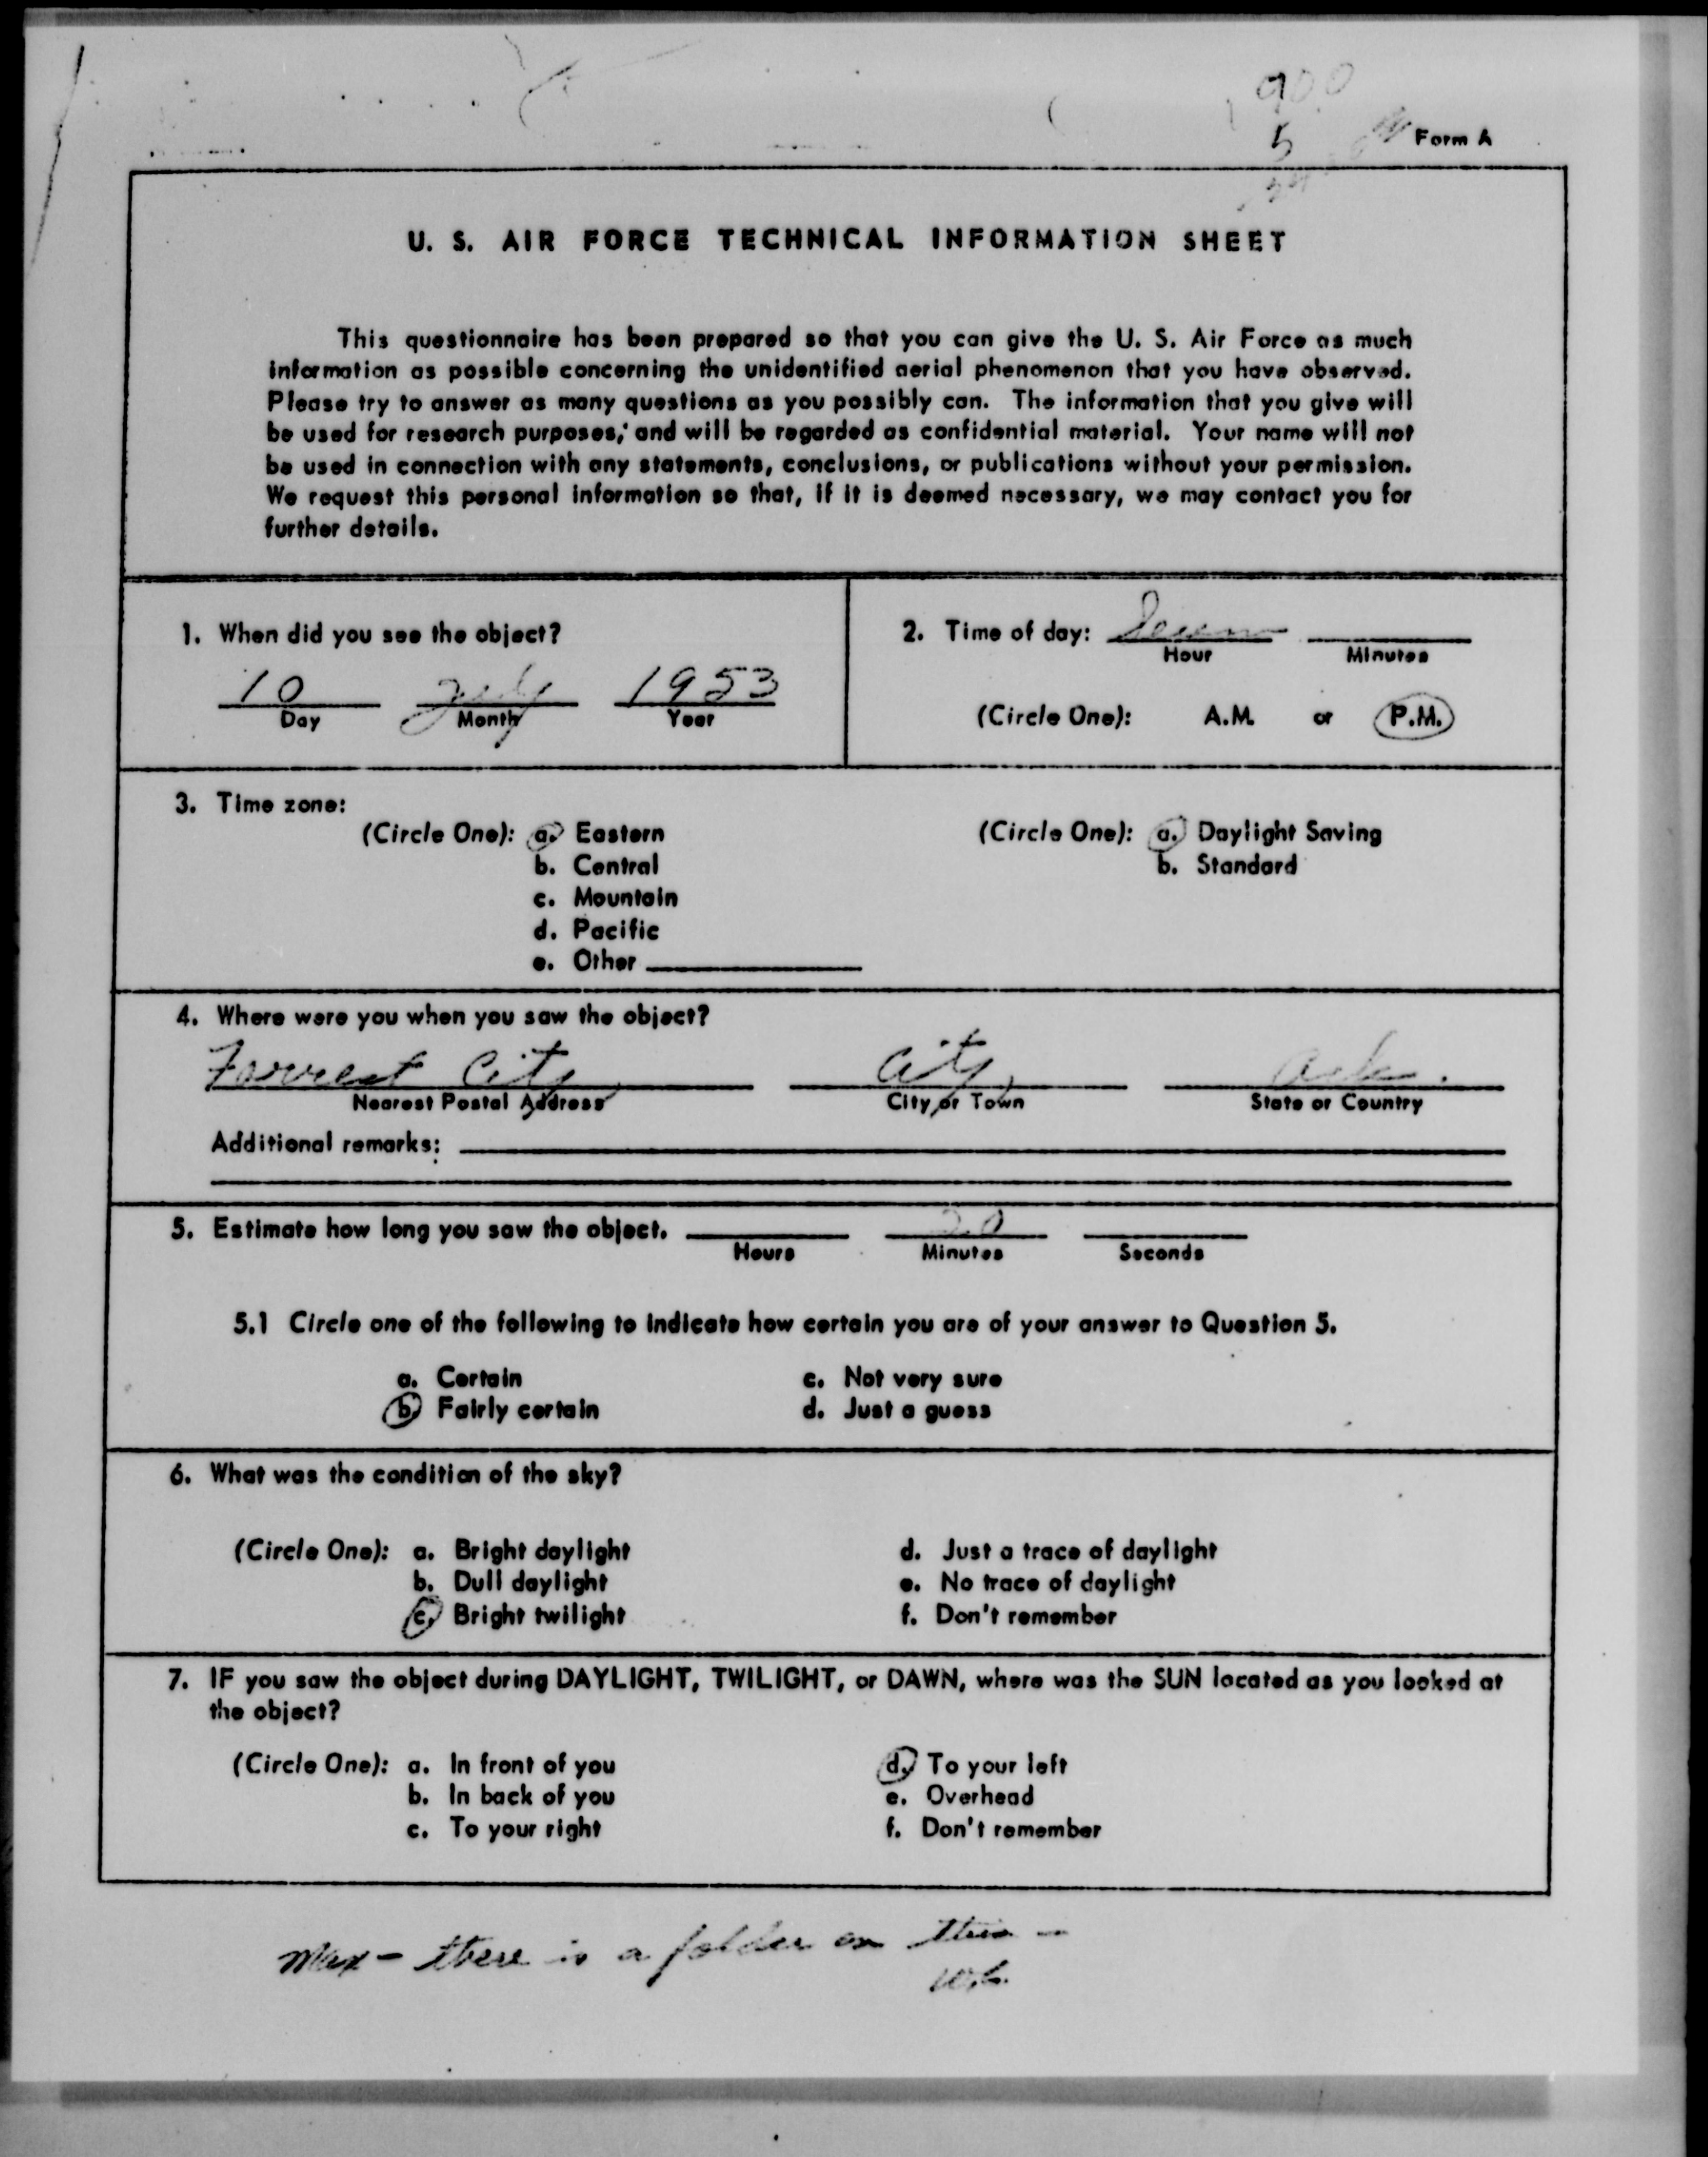 900
5
Form A
U. S. AIR FORCE TECHNICAL INFORMATION SHEET
This questionnaire has been prepared so that you can give the U. S. Air Force as much
information as possible concerning the unidentified aerial phenomenon that you have observed.
Please try to answer as many questions as you possibly can. The information that you give will
be used for research purposes, and will be regarded as confidential material. Your name will not
be used in connection with any statements, conclusions, or publications without your permission.
We request this personal information so that, if it is deemed necessary, we may contact you for
further details.
1. When did you see the object?
10 July 1953
Day Month Year
2. Time of day: Seven
Hour Minutes
(Circle One): A.M. or P.M.
3. Time zone:
(Circle One): a. Eastern
b. Central
c. Mountain
d. Pacific
e. Other
(Circle One): a. Daylight Saving
b. Standard
4. Where were you when you saw the object?
Forrest City City Ark.
Nearest Postal Address City or Town State or Country
Additional remarks:
5. Estimate how long you saw the object. 20
Hours Minutes Seconds
5.1 Circle one of the following to indicate how certain you are of your answer to Question 5.
a. Certain
b. Fairly certain
c. Not very sure
d. Just a guess
6. What was the condition of the sky?
(Circle One): a. Bright daylight
b. Dull daylight
c. Bright twilight
d. Just a trace of daylight
e. No trace of daylight
f. Don't remember
7. IF you saw the object during DAYLIGHT, TWILIGHT, or DAWN, where was the SUN located as you looked at
the object?
(Circle One): a. In front of you
b. In back of you
c. To your right
d. To your left
e. Overhead
f. Don't remember
Max - there is a folder on this -